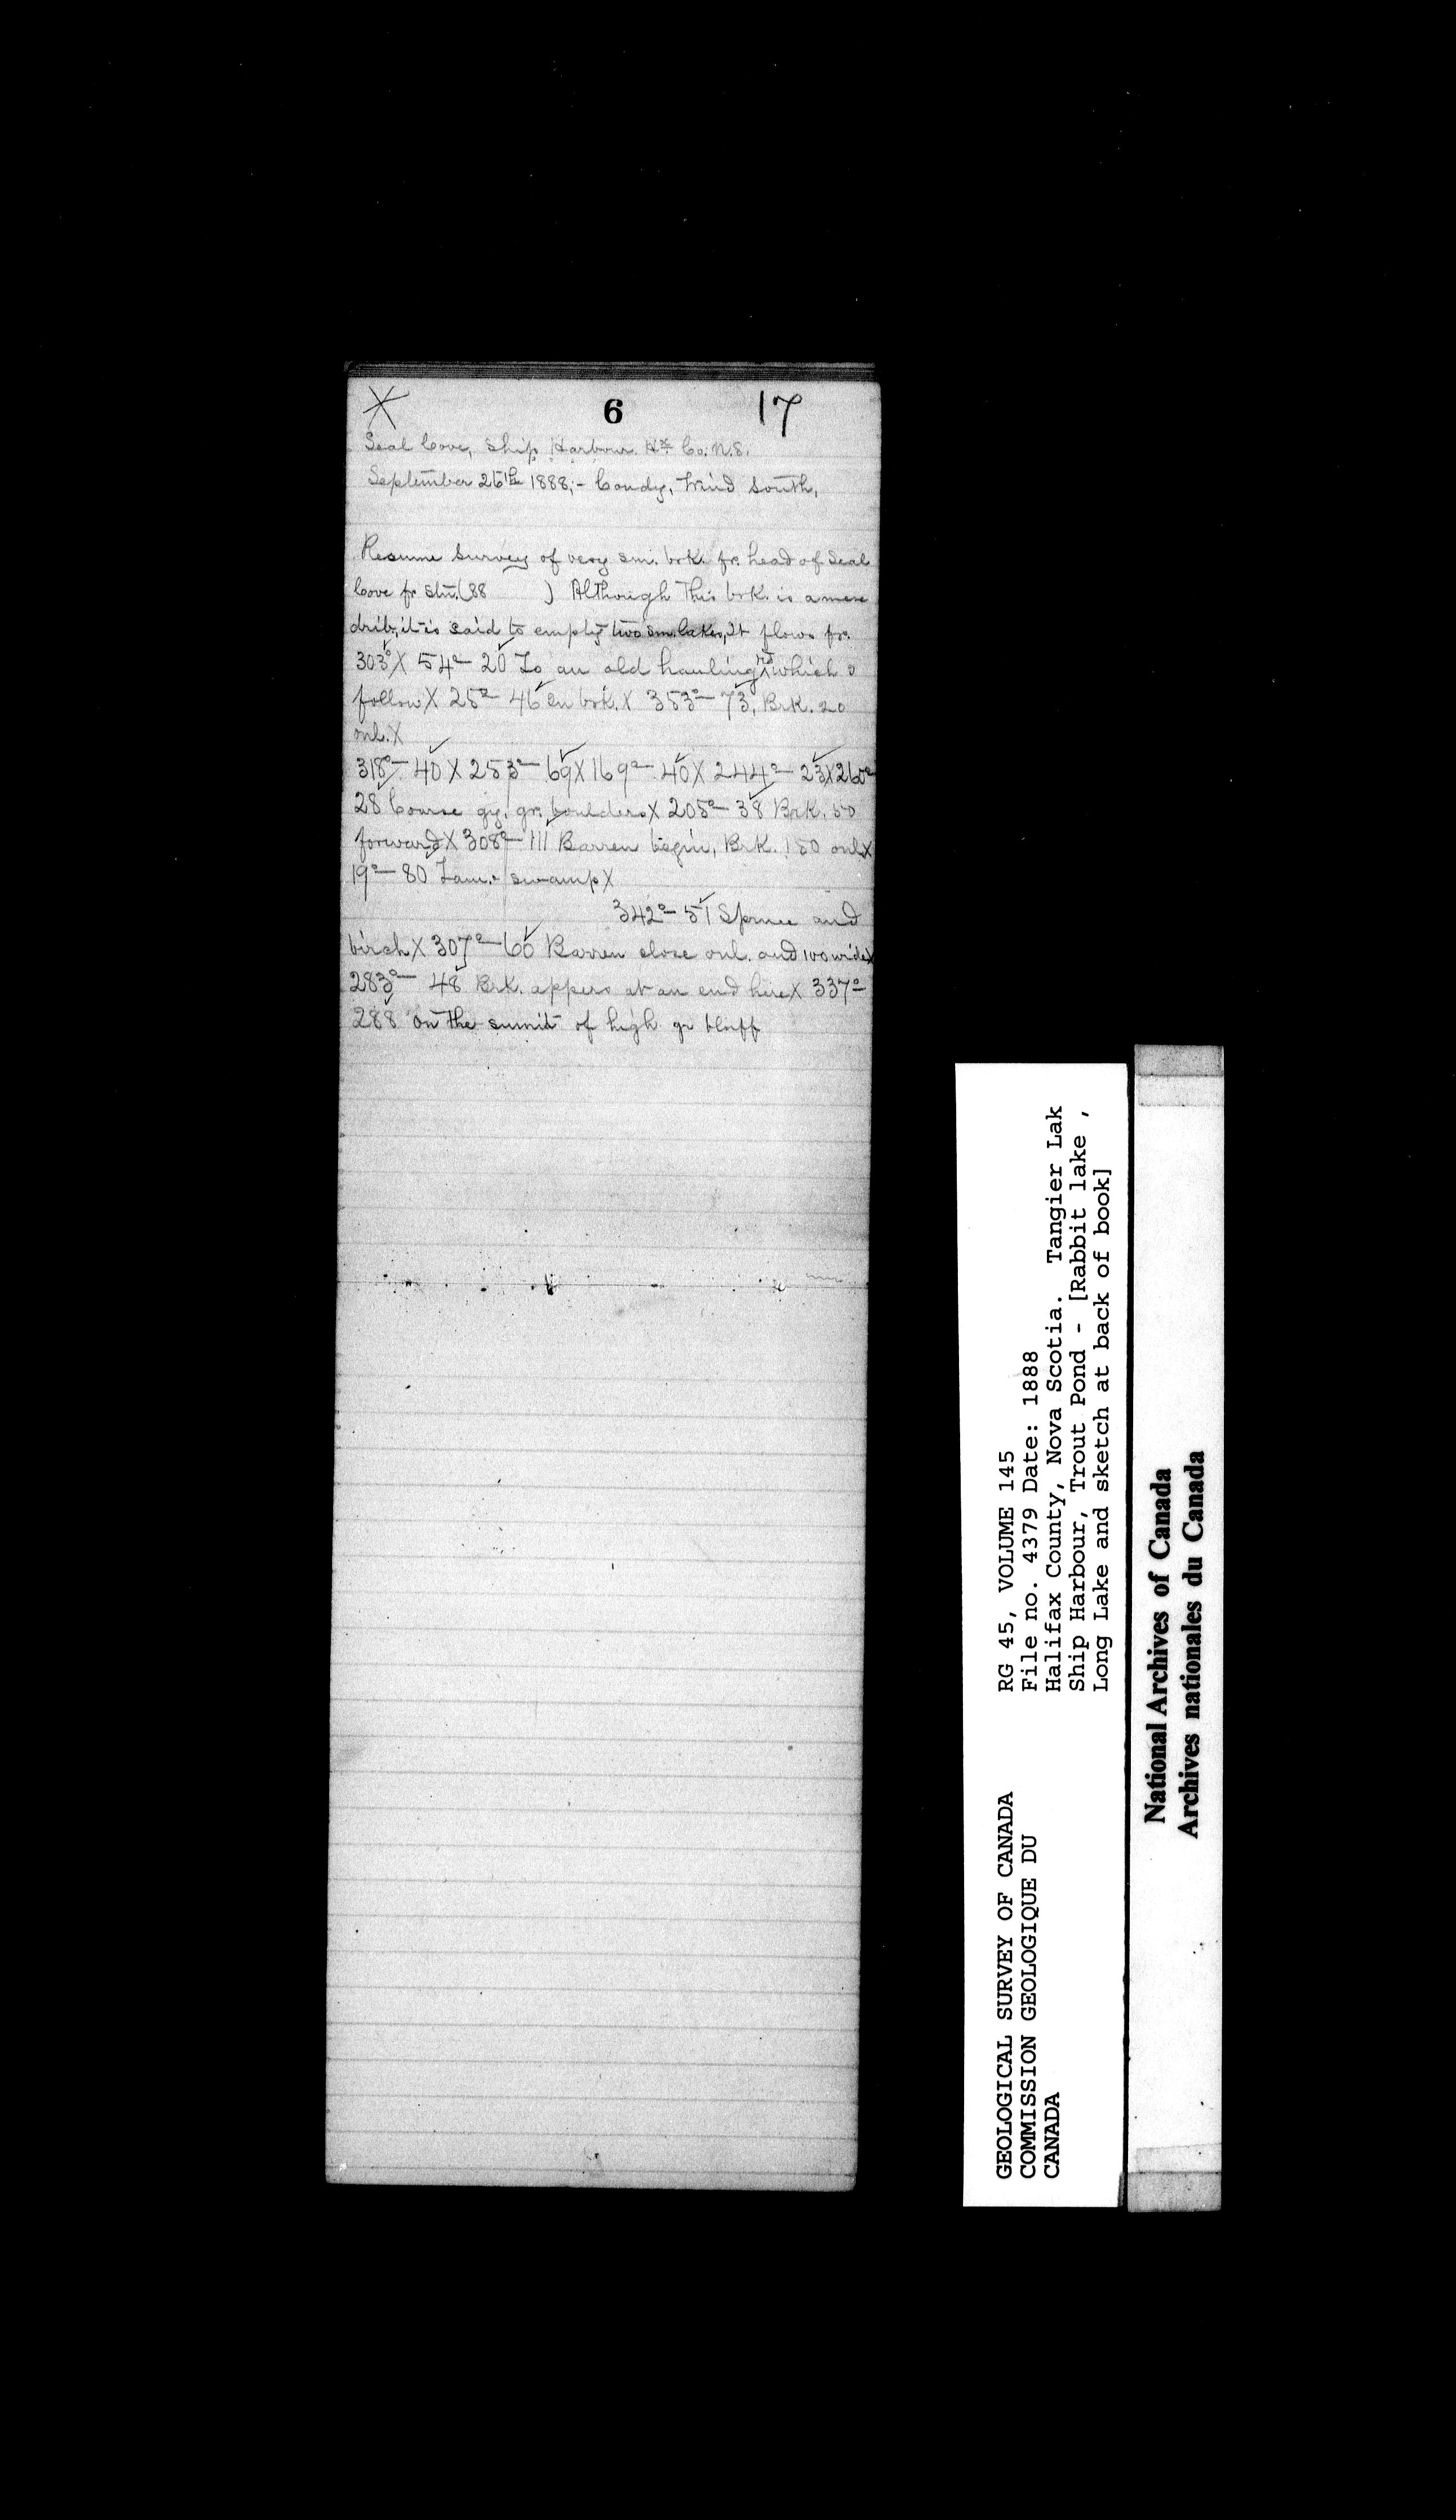 6 17
Seal Cove, Ship Harbour. Hx Co. N.S.
September 25th 1888;- Coudy, Wind South,
Resume Survey of very sm. brk. fr. head of Seal
Cove fr stn. (88 ) Although this brk. is a mere
drib, it is said to empty two sm. lakes, It flows fr.
303° X 54° - 20 To an old hauling rd which I
follow X 25° - 46 on brk. X 353° - 73, Brk. 20
onl. X
318° - 40 X 253° - 69 X 169° - 40 X 244° - 23 X 260°
28 Course gy. gr. boulders X 205° - 38 Brk. 50
forward X 308° - 111 Barren begin, Brk. 150 onl X
19° - 80 Tam. swamp X
342° - 51 Spruce and
birch X 307° - 60 Barren close onl. and 100 wide X
283° - 48 Brk. appers at an end here X 337°
288 on the sumit of high gr bluff
GEOLOGICAL SURVEY OF CANADA
COMMISSION GEOLOGIQUE DU
CANADA
RG 45, VOLUME 145
File no. 4379 Date: 1888
Halifax County, Nova Scotia. Tangier Lak
Ship Harbour, Trout Pond - [Rabbit lake ,
Long Lake and sketch at back of book]
National Archives of Canada
Archives nationales du Canada